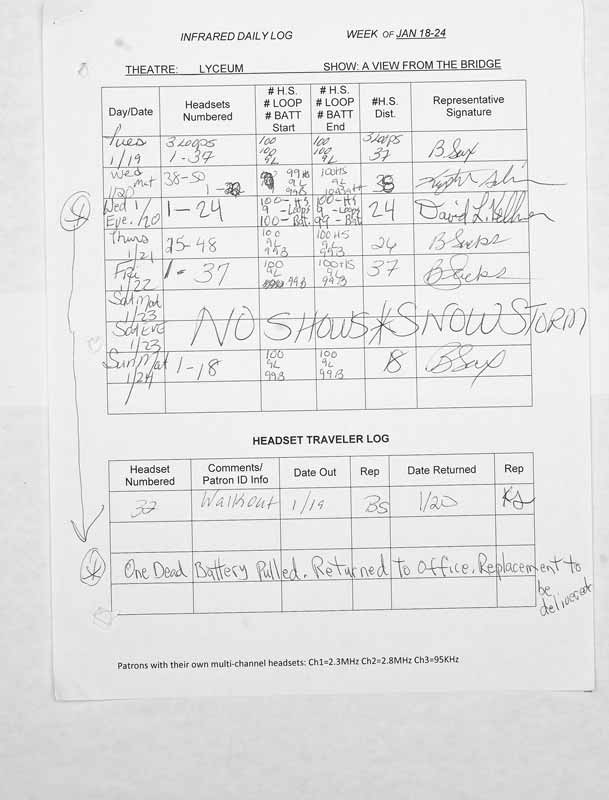 INFRARED DAILY LOG WEEK OF JAN 18-24
THEATRE: LYCEUM SHOW: A VIEW FROM THE BRIDGE
Day/Date Headsets Numbered # H.S. # LOOP # BATT Start # H.S. # LOOP # BATT End #H.S. Dist. Representative Signature
Tues 1/19 3 Loops 1-37 100 100 9L 100 100 9L 3 Loops 37 B Sax
Wed Mat 1/20 38-50 1- 99 HS 9L 99B 100HS 9L 38
Wed 1/20 Eve. 1-24 100-HS 9-Loops 100-Bat. 100-HS 9-Loops 99-Bat. 24 David L.
Thurs 1/21 25-48 100 9L 99B 100HS 9L 99B 24 B Sacks
Fri 1/22 1-37 100 9L 99B 100HS 9L 99B 37 B Sacks
Sat Mat 1/23
NO SHOWS * SNOWSTORM
Sat Eve 1/23
Sun Mat 1/24 1-18 100 9L 99B 100 9L 99B 18 B Sax
HEADSET TRAVELER LOG
Headset Numbered Comments/ Patron ID Info Date Out Rep Date Returned Rep
32 Walkout 1/19 BS 1/20 KS
One Dead Battery Pulled. Returned to Office. Replacement to be delivered
Patrons with their own multi-channel headsets: Ch1=2.3MHz Ch2=2.8MHz Ch3=95KHz